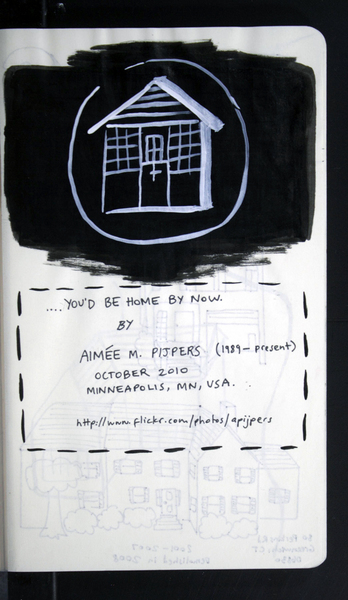 ....YOU'D BE HOME BY NOW.
BY
AIMÉE M. PIJPERS (1989 - present)
OCTOBER 2010
MINNEAPOLIS, MN, USA.
http://www.flickr.com/photos/apijpers